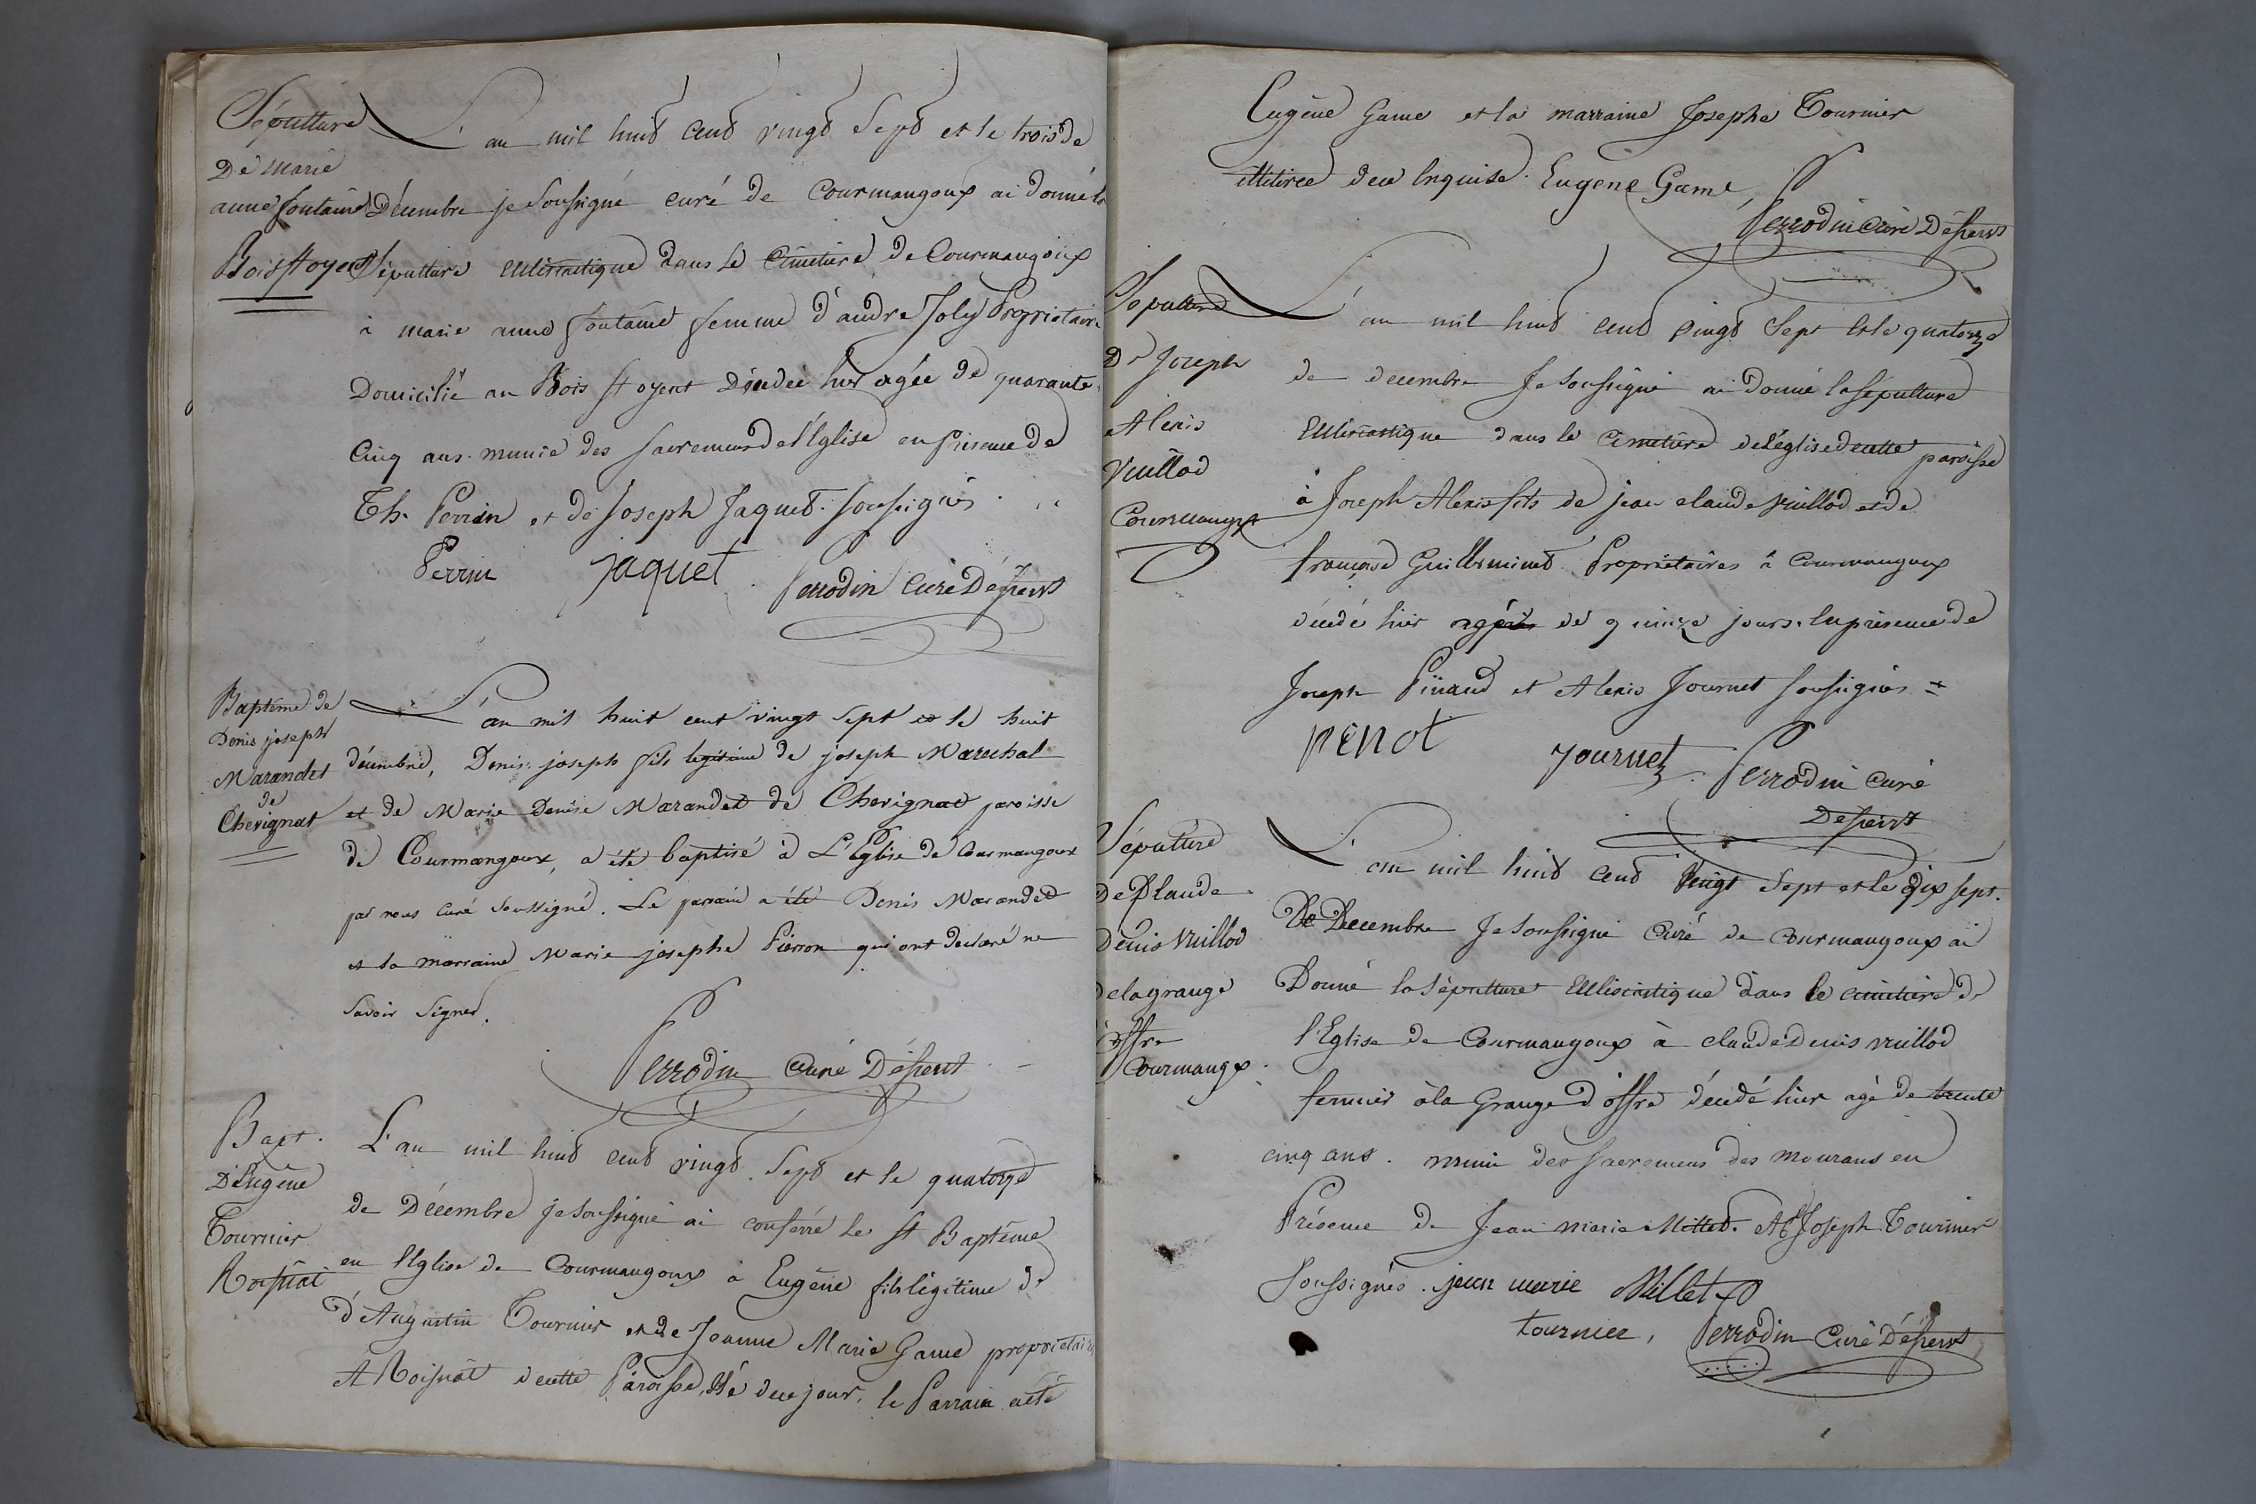 Sépulture
De Marie
anne fontaine
Bois Stoyent
L'an mil huit cent vingt sept et le trois de
Décembre je soussigné curé de Courmangoux ai donné la
sépulture ecclésiastique dans le cimetière de Courmangoux
à marie anne fontaine femme d'andré Joly Propriétaire
Domicilié au Bois Stoyent Décédée hier agée de quarante
Cinq ans. munie des sacremens de l'Eglise en présence de
Th. Perrin et de Joseph Jaquet. soussignés
Perrin jaquet Perrodin curé Dess.t
Baptême de
Denis joseph
Marandet
de
Chevignat
L'an mil huit cent vingt sept et le huit
décembre, Denis joseph fils légitime de joseph Marechal
et de Marie Denise Marandet de Chevignat paroisse
de Courmangoux, a été baptisé à L'Eglise de Courmangoux
par nous curé soussigné. Le parrain a été Denis Marandet
et la marraine Marie josephe Pierron qui ont declaré ne
savoir signer.
Perrodin curé Dess.t
Bapt.
D'Eugène
Tournier
Roissiat
L'an mil huit cent vingt sept et le quatorze
de Décembre je soussigné ai conferré le St Baptême
en l'Eglise de Courmangoux à Eugène fils légitime de
d'Augustin Tournier et de Jeanne Marie Game propriétaires
A Roissiat de cette Paroisse, Né de ce jour, le Parrain a été
Eugène Game et la marraine Josephe Tournier
de ce Enquise. Eugene Game,
Perrodin curé Dess.t
Sépulture
De Joseph
Alexis
Vuillod
Courmangx
L'an mil huit cent vingt sept et le quatorze
de decembre Je soussigné ai donné la sépulture
Ecclésiastique dans le cimetière de l'église de cette paroisse
à Joseph Alexis fils de jean claude Vuillod et de
françoise Guilleminet Propriétaires à Courmangoux
décédé hier agé de quinze jours. En présence de
Joseph Pinaud et Alexis Journet soussignés =
penot journet Perrodin curé
Dess.t
Sépulture
De Claude
Denis Vuillod
de la grange
d'offre
Courmangx.
L'an mil huit cent vingt sept et le dix sept.
De Decembre Je soussigné Curé de Courmangoux ai
Donné la sépulture Ecclésiastique dans le cimetière de
l'Eglise de Courmangoux à claude Denis Vuillod
fermier à la Grange d'offre décédé hier agé de trente
cinq ans. muni des sacremens des mourans en
Présence de Jean marie Millet. Et Joseph Tournier
soussignés. jean marie Millet
tournier, Perrodin Curé Dess.t